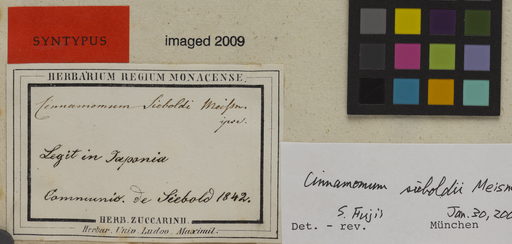 SYNTYPUS
imaged 2009
HERBARIUM REGIUM MONACENSE.
Cinnamomum Sieboldi Meissn.
ipse.
Legit in Japonia
Communic. de Siebold 1842.
HERB. ZUCCARINII.
Herbar. Univ. Ludov. Maximil.
Cinnamomum sieboldii Meisn
S. Fujii
Jan. 30, 200
Det. - rev. München